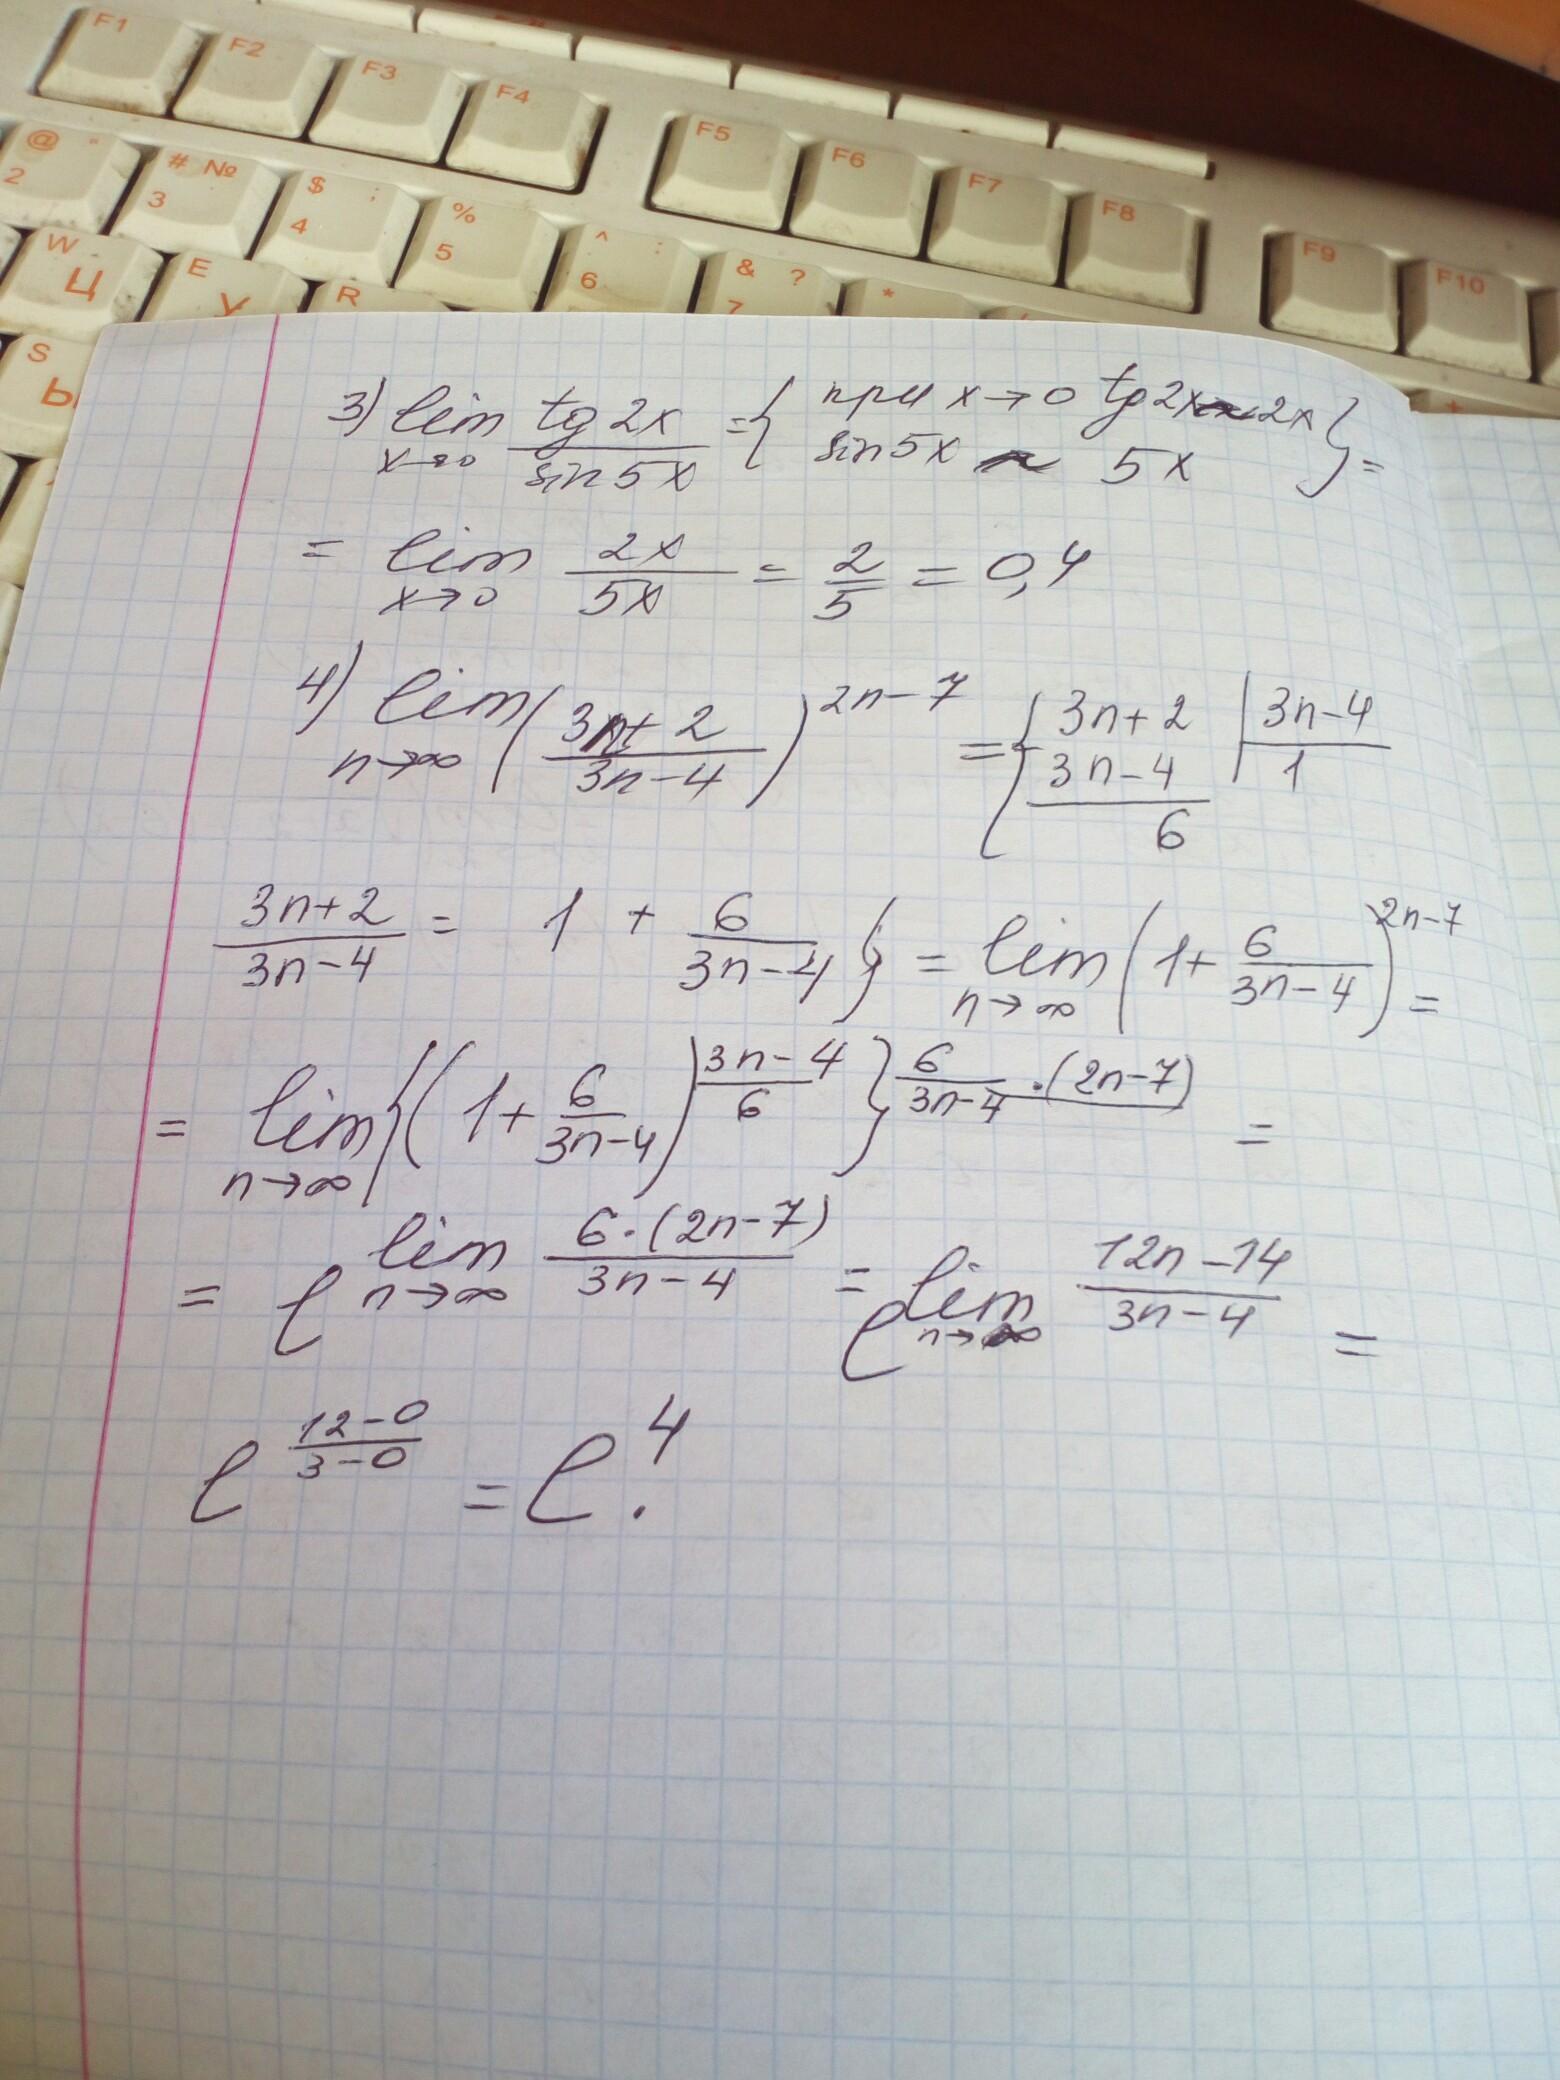 F1 F2 F3 F4 F5 F6 F7 F8 F9 F10
@ " 2 # № 3 $ ; 4 % 5 ^ : 6 & ? 7 *
W Ц E У R
S Ы
3) lim x→0 tg2x / sin5x = { при x→0 tg2x ~ 2x sin5x ~ 5x } =
= lim x→0 2x / 5x = 2/5 = 0,4
4) lim n→∞ ( (3n+2) / (3n-4) )^(2n-7) = { 3n+2 | 3n-4
3n-4 | 1
6
(3n+2) / (3n-4) = 1 + 6 / (3n-4) } = lim n→∞ ( 1 + 6 / (3n-4) )^(2n-7) =
= lim n→∞ { ( 1 + 6 / (3n-4) )^((3n-4) / 6) }^(6 / (3n-4) · (2n-7)) =
= e^(lim n→∞ 6·(2n-7) / (3n-4)) = e^(lim n→∞ (12n-14) / (3n-4)) =
e^((12-0) / (3-0)) = e^4.